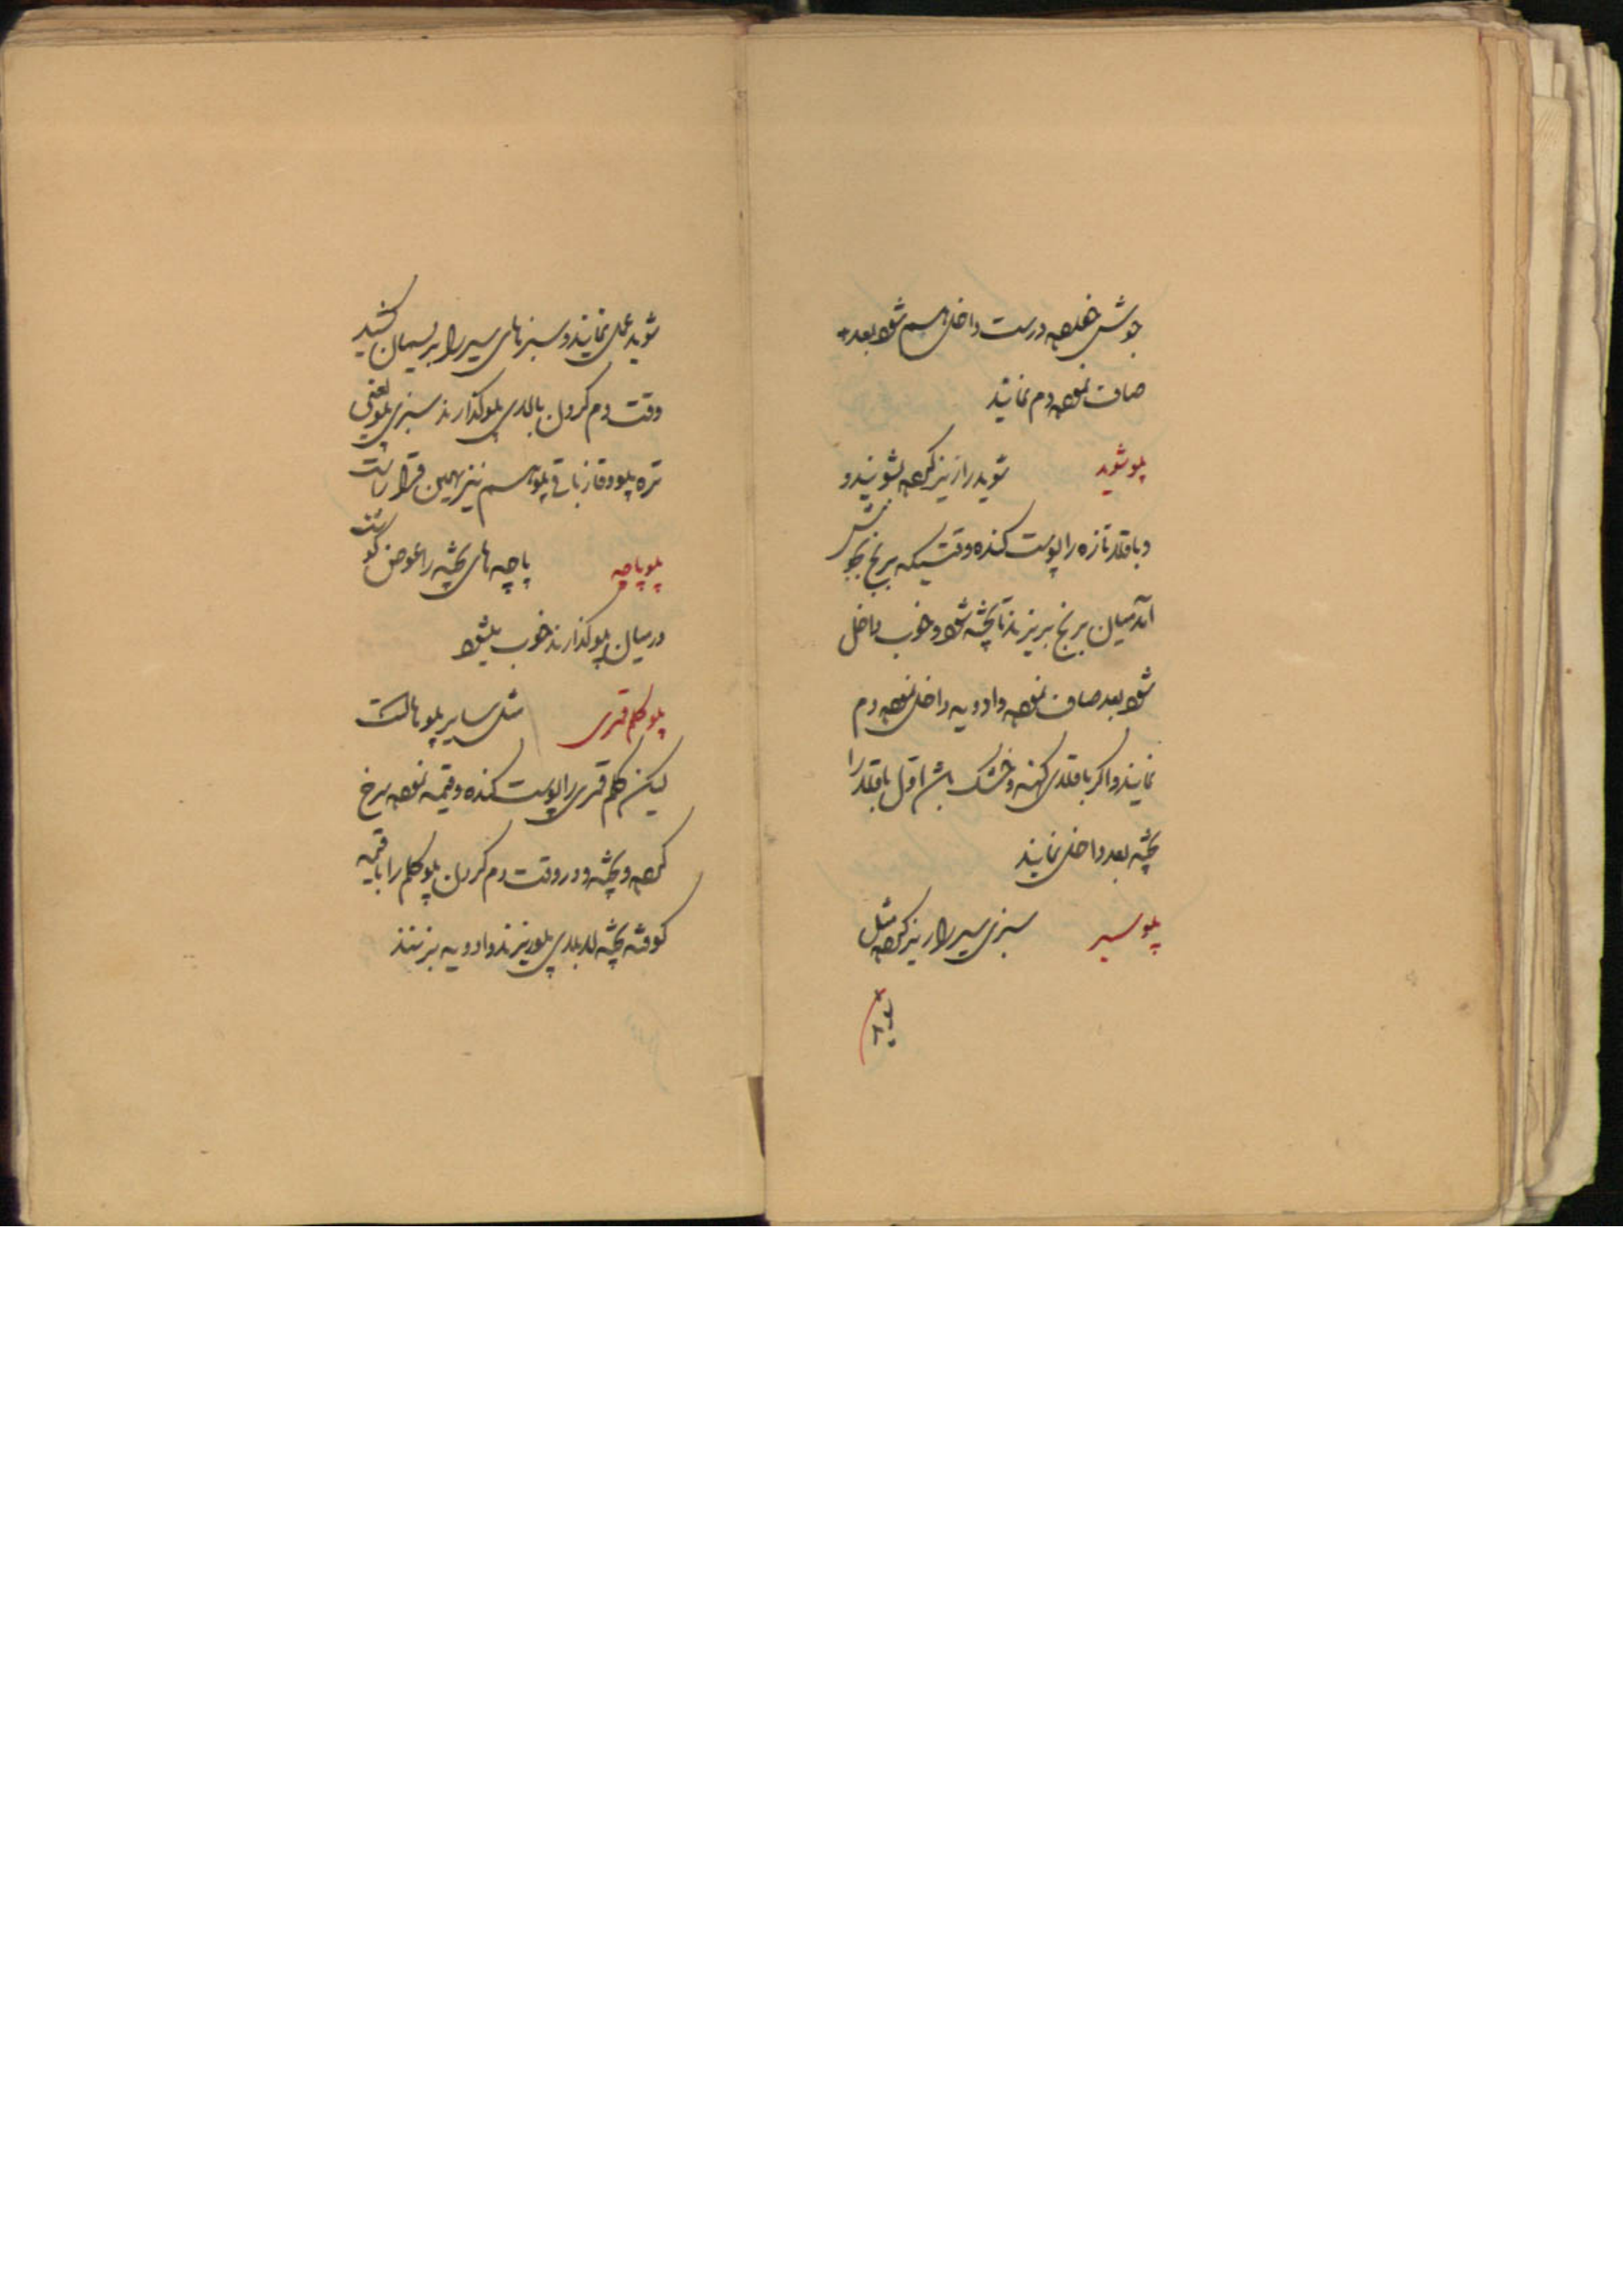 جوش خورده درست داخل هم شود بعد
صاف نموده دم نمایند
پلو شوید شوید را ریز کرده بشویند و
و باقلا تازه را پوست کنده وقتیکه برنج بجوش
آمد میان برنج بریزند تا پخته شود و خوب داخل
شود بعد صاف نموده و ادویه داخل نموده دم
نمایند و اگر باقلای کهنه و خشک باشد اول باقلا را
پخته بعد داخل نمایند
پلو سیر سبزی سیر را ریز کرده مثل
شوید عمل نمایند و سبزهای سیر را بریسمان کشید
وقت دم کردن بالای پلو گذارند سبزی پلو یعنی
تره پلو و قازیاقی پلو هم نیز بهمین قرار است
پلو پاچه پاچه های پخته را عوض گوشت
در میان پلو گذارند خوب میشود
پلو کلم قمری مثل سایر پلوهاست
لیکن کلم قمری را پوست کنده و قیمه نموده سرخ
کرده و پخته و در وقت دم کردن پلو کلم را با قیمه
کوفته پخته لابلای پلو بریزند و ادویه بزنند